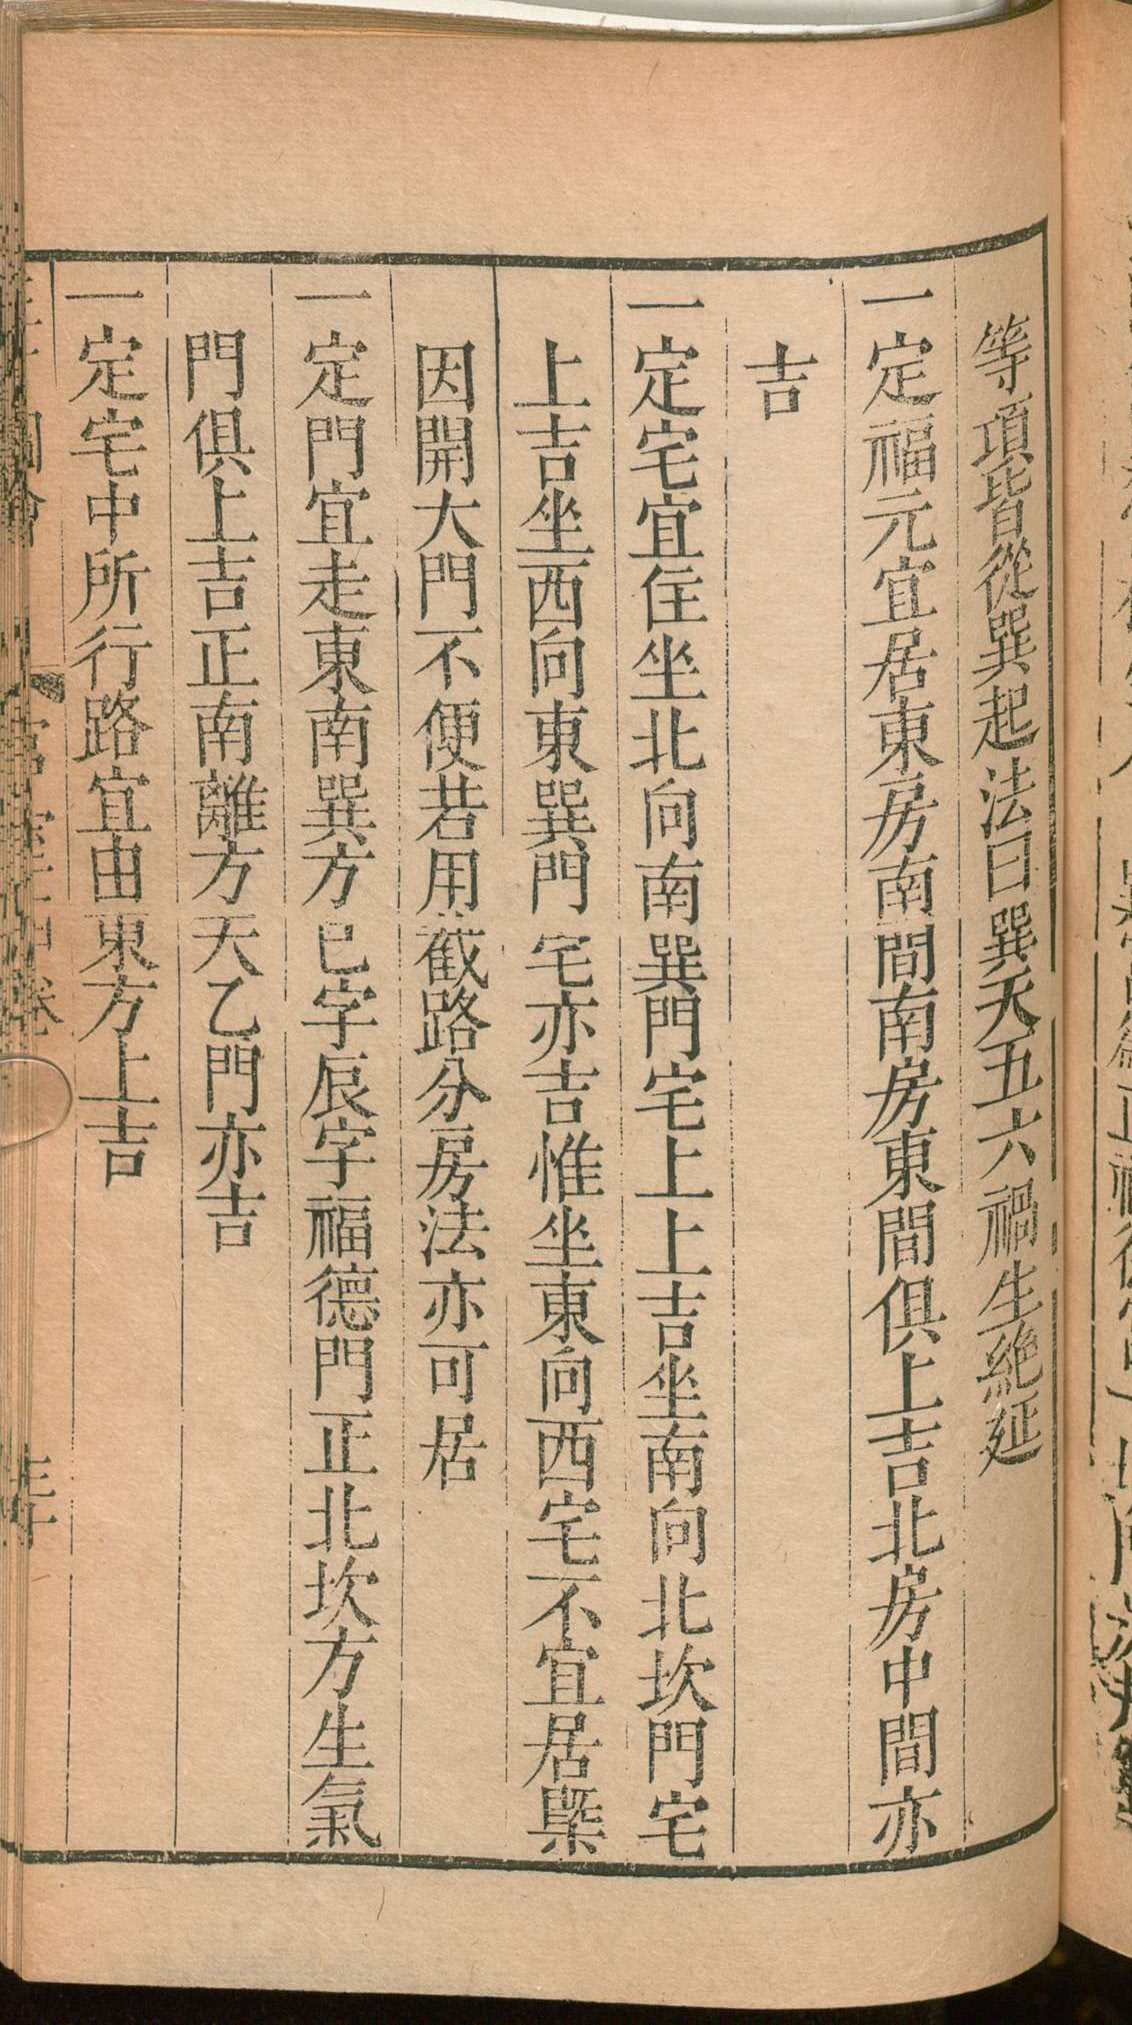 等項皆從巽起法曰巽天五六禍生絶延
一定福元宜居東房南間南房東間俱上吉北房中間亦
吉
一定宅宜住坐北向南巽門宅上上吉坐南向北坎門宅
上吉坐西向東巽門宅亦吉惟坐東向西宅不宜居槩
因開大門不便若用截路分房法亦可居
一定門宜走東南巽方巳字辰字福德門正北坎方生氣
門俱上吉正南離方天乙門亦吉
一定宅中所行路宜由東方上吉